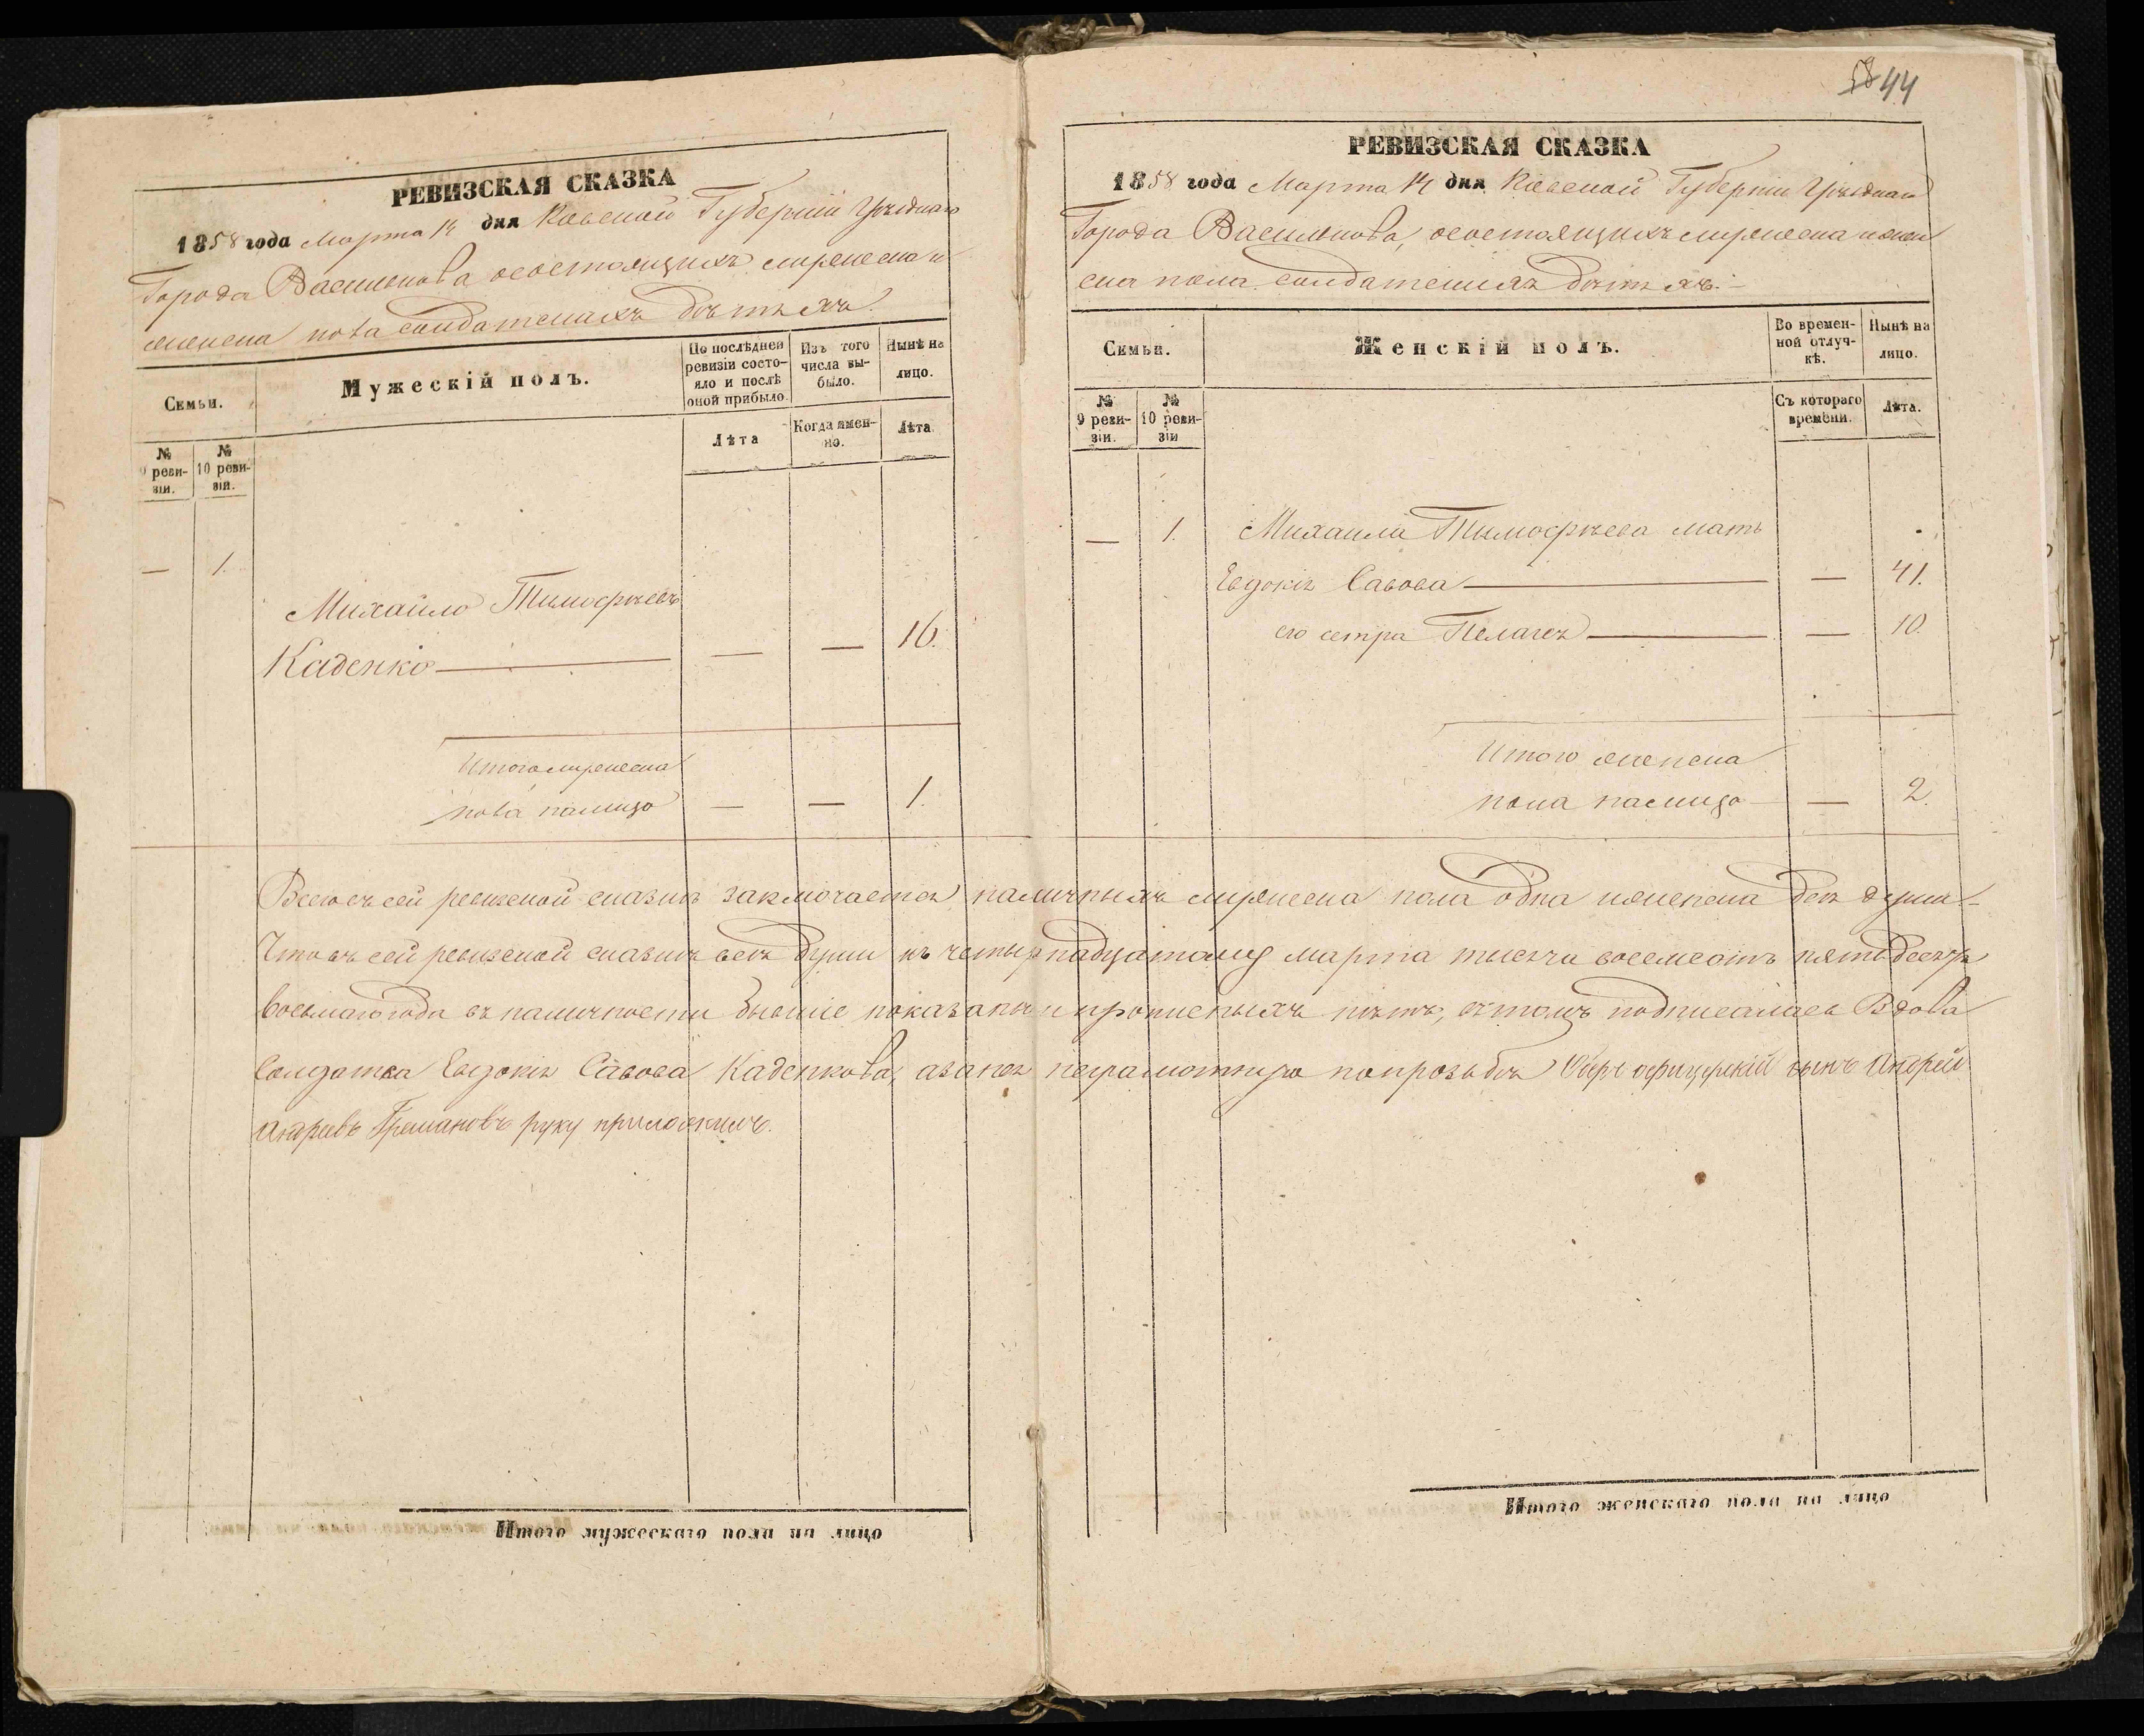 РЕВИЗСКАЯ СКАЗКА
1858 года Марта 14 дня Кіевской Губерніи Уѣзднаго
Города Василькова, о состоящихъ мужеска и
женска пола солдатскихъ дѣтяхъ.
Семьи.
Мужескій полъ.
По послѣдней ревизіи состояло и послѣ оной прибыло.
Изъ того числа выбыло.
Нынѣ на лицо.
№ 9 ревизіи.
№ 10 ревизіи.
Лѣта
Когда именно.
Лѣта.
— 1.
Михайло Тимофѣевъ
Каденко — — — 16.
Итого мужеска
пола налицо — — 1.
58 44
РЕВИЗСКАЯ СКАЗКА
1858 года Марта 14 дня Кіевской Губерніи Уѣзднаго
Города Василькова, о состоящихъ мужеска и жен
ска пола солдатскихъ дѣтяхъ.—
Семьи.
Женскій полъ.
Во временной отлучкѣ.
Нынѣ на лицо.
№ 9 ревизіи.
№ 10 ревизіи
Съ котораго времени.
Лѣта.
— 1. Михаила Тимофѣева мать
Евдокія Савова — — 41.
его сетра Пелагея — — 10.
Итого женска
пола налицо — — 2.
Всего въ сей ревизской сказкѣ заключается наличныхъ мужеска пола одна и женска двѣ души.—
Что въ сей ревизской сказкѣ всѣ души къ четырнадцатому марта тысяча восемсотъ пятьдесятъ
восьмаго года въ наличности бывшіе показаны и прописныхъ нѣтъ, въ томъ подписалась Вдова
Солдатка Евдокія Савова Каденкова, а за нея неграмотную по прозьбѣ Оберъ офицерскій сынъ Андрей
Андреевъ руку приложилъ.
Итого мужескаго пола на лицо
Итого женскаго пола на лицо